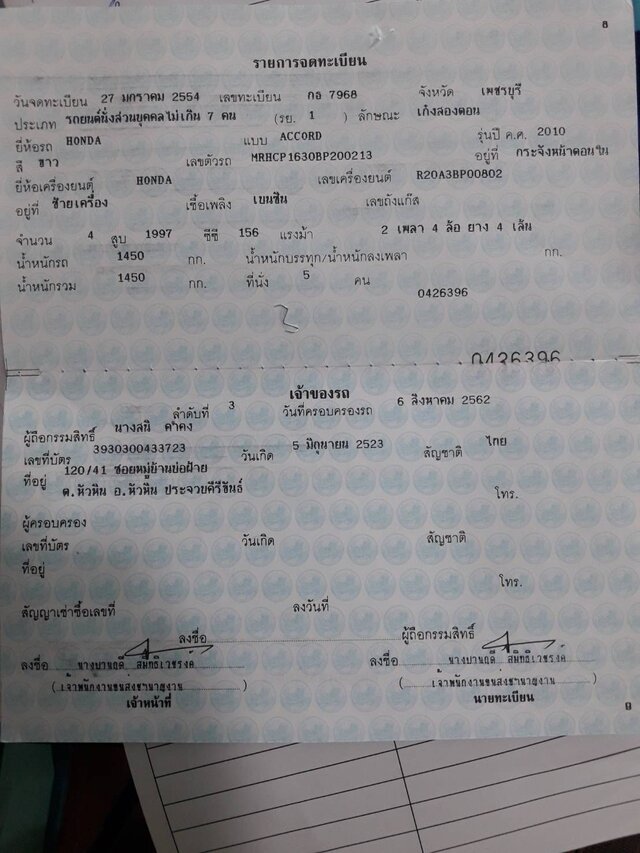 8
รายการจดทะเบียน
วันจดทะเบียน 27 มกราคม 2554 เลขทะเบียน กอ 7968 จังหวัด เพชรบุรี
ประเภท รถยนต์นั่งส่วนบุคคลไม่เกิน 7 คน (รย. 1 ) ลักษณะ เก๋งสองตอน
ยี่ห้อรถ HONDA แบบ ACCORD รุ่นปี ค.ศ. 2010
สี ขาว เลขตัวรถ MRHCP1630BP200213 อยู่ที่ กระจังหน้าตอนใน
ยี่ห้อเครื่องยนต์ HONDA เลขเครื่องยนต์ R20A3BP00802
อยู่ที่ ซ้ายเครื่อง เชื้อเพลิง เบนซิน เลขถังแก๊ส
จำนวน 4 สูบ 1997 ซีซี 156 แรงม้า 2 เพลา 4 ล้อ ยาง 4 เส้น
น้ำหนักรถ 1450 กก. น้ำหนักบรรทุก/น้ำหนักลงเพลา กก.
น้ำหนักรวม 1450 กก. ที่นั่ง 5 คน
0426396
0426396
เจ้าของรถ
ลำดับที่ 3 วันที่ครอบครองรถ 6 สิงหาคม 2562
ผู้ถือกรรมสิทธิ์ นางสนิ
เลขที่บัตร 3930300433723 วันเกิด 5 มิถุนายน 2523 สัญชาติ ไทย
ที่อยู่ 120/41 ซอยหมู่บ้านบ่อฝ้าย
ต.หัวหิน อ.หัวหิน ประจวบคีรีขันธ์ โทร.
ผู้ครอบครอง
เลขที่บัตร วันเกิด สัญชาติ
ที่อยู่
โทร.
สัญญาเช่าซื้อเลขที่ ลงวันที่
ลงชื่อ ผู้ถือกรรมสิทธิ์
ลงชื่อ ลงชื่อ
(เจ้าพนักงานขนส่งชำนาญงาน) (เจ้าพนักงานขนส่งชำนาญงาน)
เจ้าหน้าที่ นายทะเบียน
9